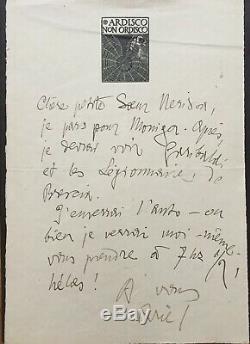 ARDISCO
NON ORDISCO
Chère petite Sœur Nerissa,
je pars pour Moniga. Après,
je devrai voir Garibaldi
et les Légionnaires, de
Brescia.
J'enverrai l'auto - ou
bien je verrai moi-même
vous prendre à 7 h
hélas !
A vous
Ariel
worthpoint